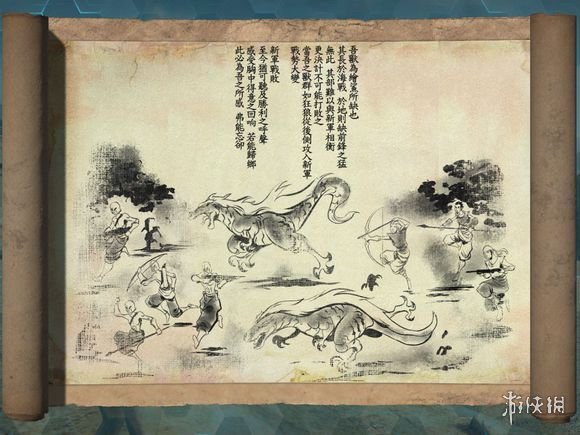 吾獸為繪鯊所缺也
其長於海戰 於地則缺前鋒之猛
無此 其部難以與新軍相衡
更決計不可能打敗之
當吾之獸群如狂狼從後側攻入新軍
戰勢大變
新軍戰敗
至今猶可聽及勝利之呼聲
感受胸中得意之回响 若能歸鄉
此必為吾之所感 弗能忘卻
游侠网